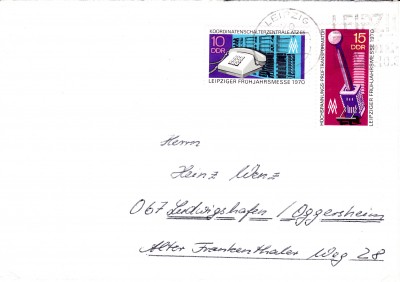 LEIPZIG
LEIPZI
KOORDINATENSCHALTERZENTRALE ATZ 65
10
DDR
LEIPZIGER FRÜHJAHRSMESSE 1970
15
DDR
HÖCHSPANNUNGS-PRÜFTRANSFORMATOR
LEIPZIGER FRÜHJAHRSMESSE 1970
Herrn
Heinz Wenz
067 Ludwigshafen / Oggersheim
Alter Frankenthaler Weg 28